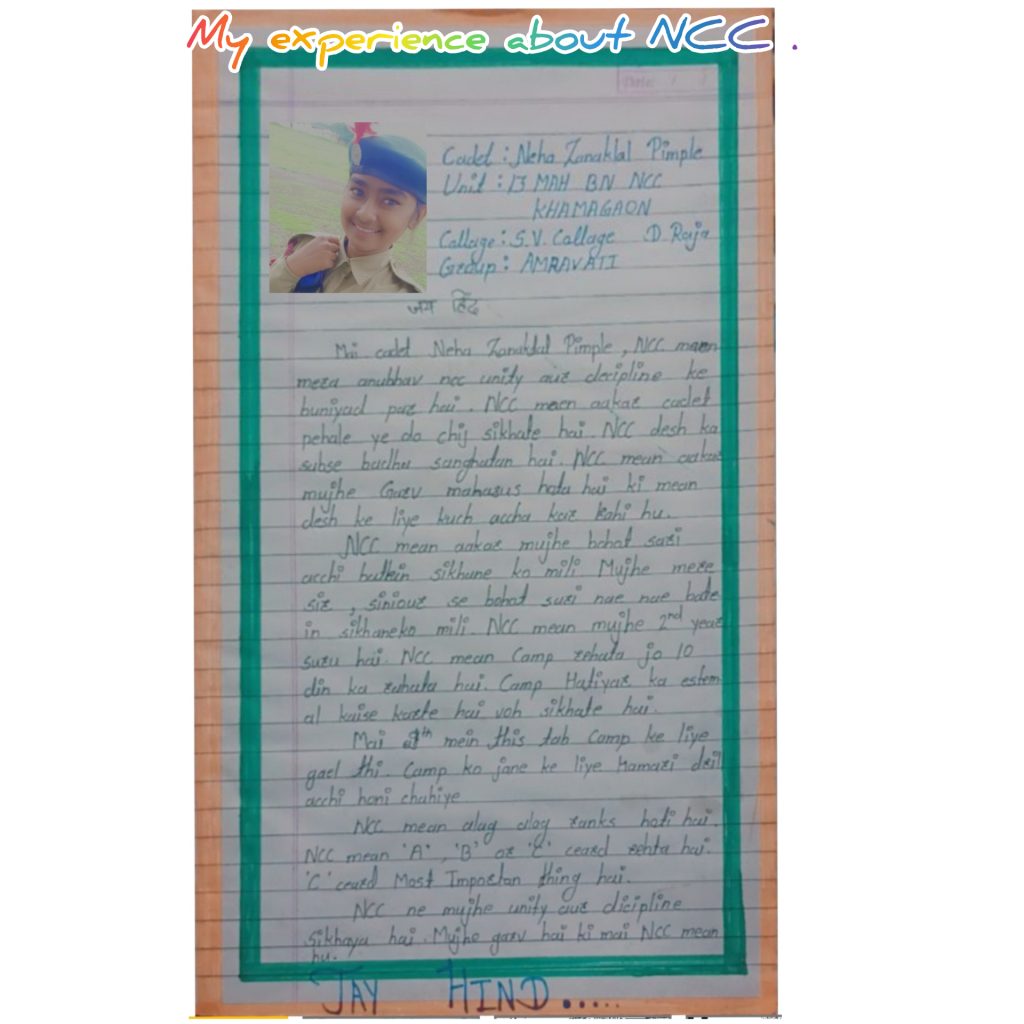 My experience about NCC .
Date: / /
Cadet : Neha Zanaklal Pimple
Unit : 13 MAH BN NCC
KHAMAGAON
Collage : S.V. Collage D. Raja
Group : AMRAVATI
जय हिंद
Mai cadet Neha Zanaklal Pimple , NCC mean
mera anubhav ncc unity aur decipline ke
buniyad par hai . NCC mean aakar cadet
pehale ye do chij sikhate hai . NCC desh ka
sabse badha sanghatan hai . NCC mean aakar
mujhe Garv mahasus hota hai ki mean
desh ke liye kuch accha kar Rahi hu .
NCC mean aakar mujhe bohot sari
acchi batein sikhane ko mili Mujhe mere
sir , siniour se bohot sari nae nae bate
in sikhaneko mili . NCC mean mujhe 2nd year
suru hai . NCC mean Camp rehata jo 10
din ka rahata hai . Camp Hatiyar ka estem
al kaise karte hai voh sikhate hai .
Mai th mein this tab Camp ke liye
gael thi . Camp ko jane ke liye Hamari dril
acchi honi chahiye
NCC mean alag alag ranks hoti hai .
NCC mean 'A' , 'B' or 'C' ceard rehta hai .
'C' ceard Most Importan thing hai .
NCC ne mujhe unity aur dicipline
sikhaya hai . Mujhe garv hai ki mai NCC mean
hu .
JAY HIND .....